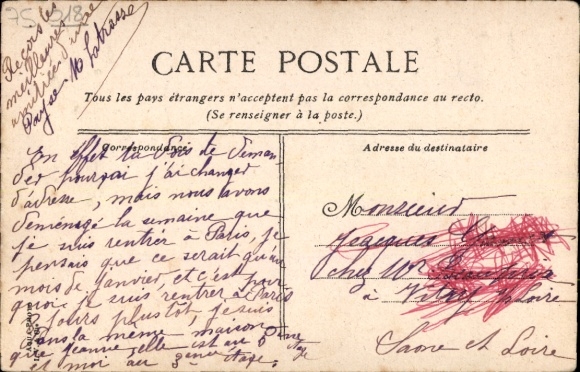 75 318
Reçois les
meilleures
amitiées d'une
Payse M Latrasse
CARTE POSTALE
Tous les pays étrangers n'acceptent pas la correspondance au recto.
(Se renseigner à la poste.)
Correspondance
Adresse du destinataire
En effet tu dois te deman
der pourquoi j'ai changer
d'adresse, mais nous avons
deménagé la semaine que
je suis rentrer à Paris, je
pensais que ce serait qu'au
mois de janvier, et c'est pour
quoi je suis rentrer à Paris
jours plus tôt, je suis
dans la même maison
que Jeanne elle est au 5ème étage
et moi au 3ème étage.
Monsieur
Jacques
chez Mr
à Vitry s Loire
Saone et Loire